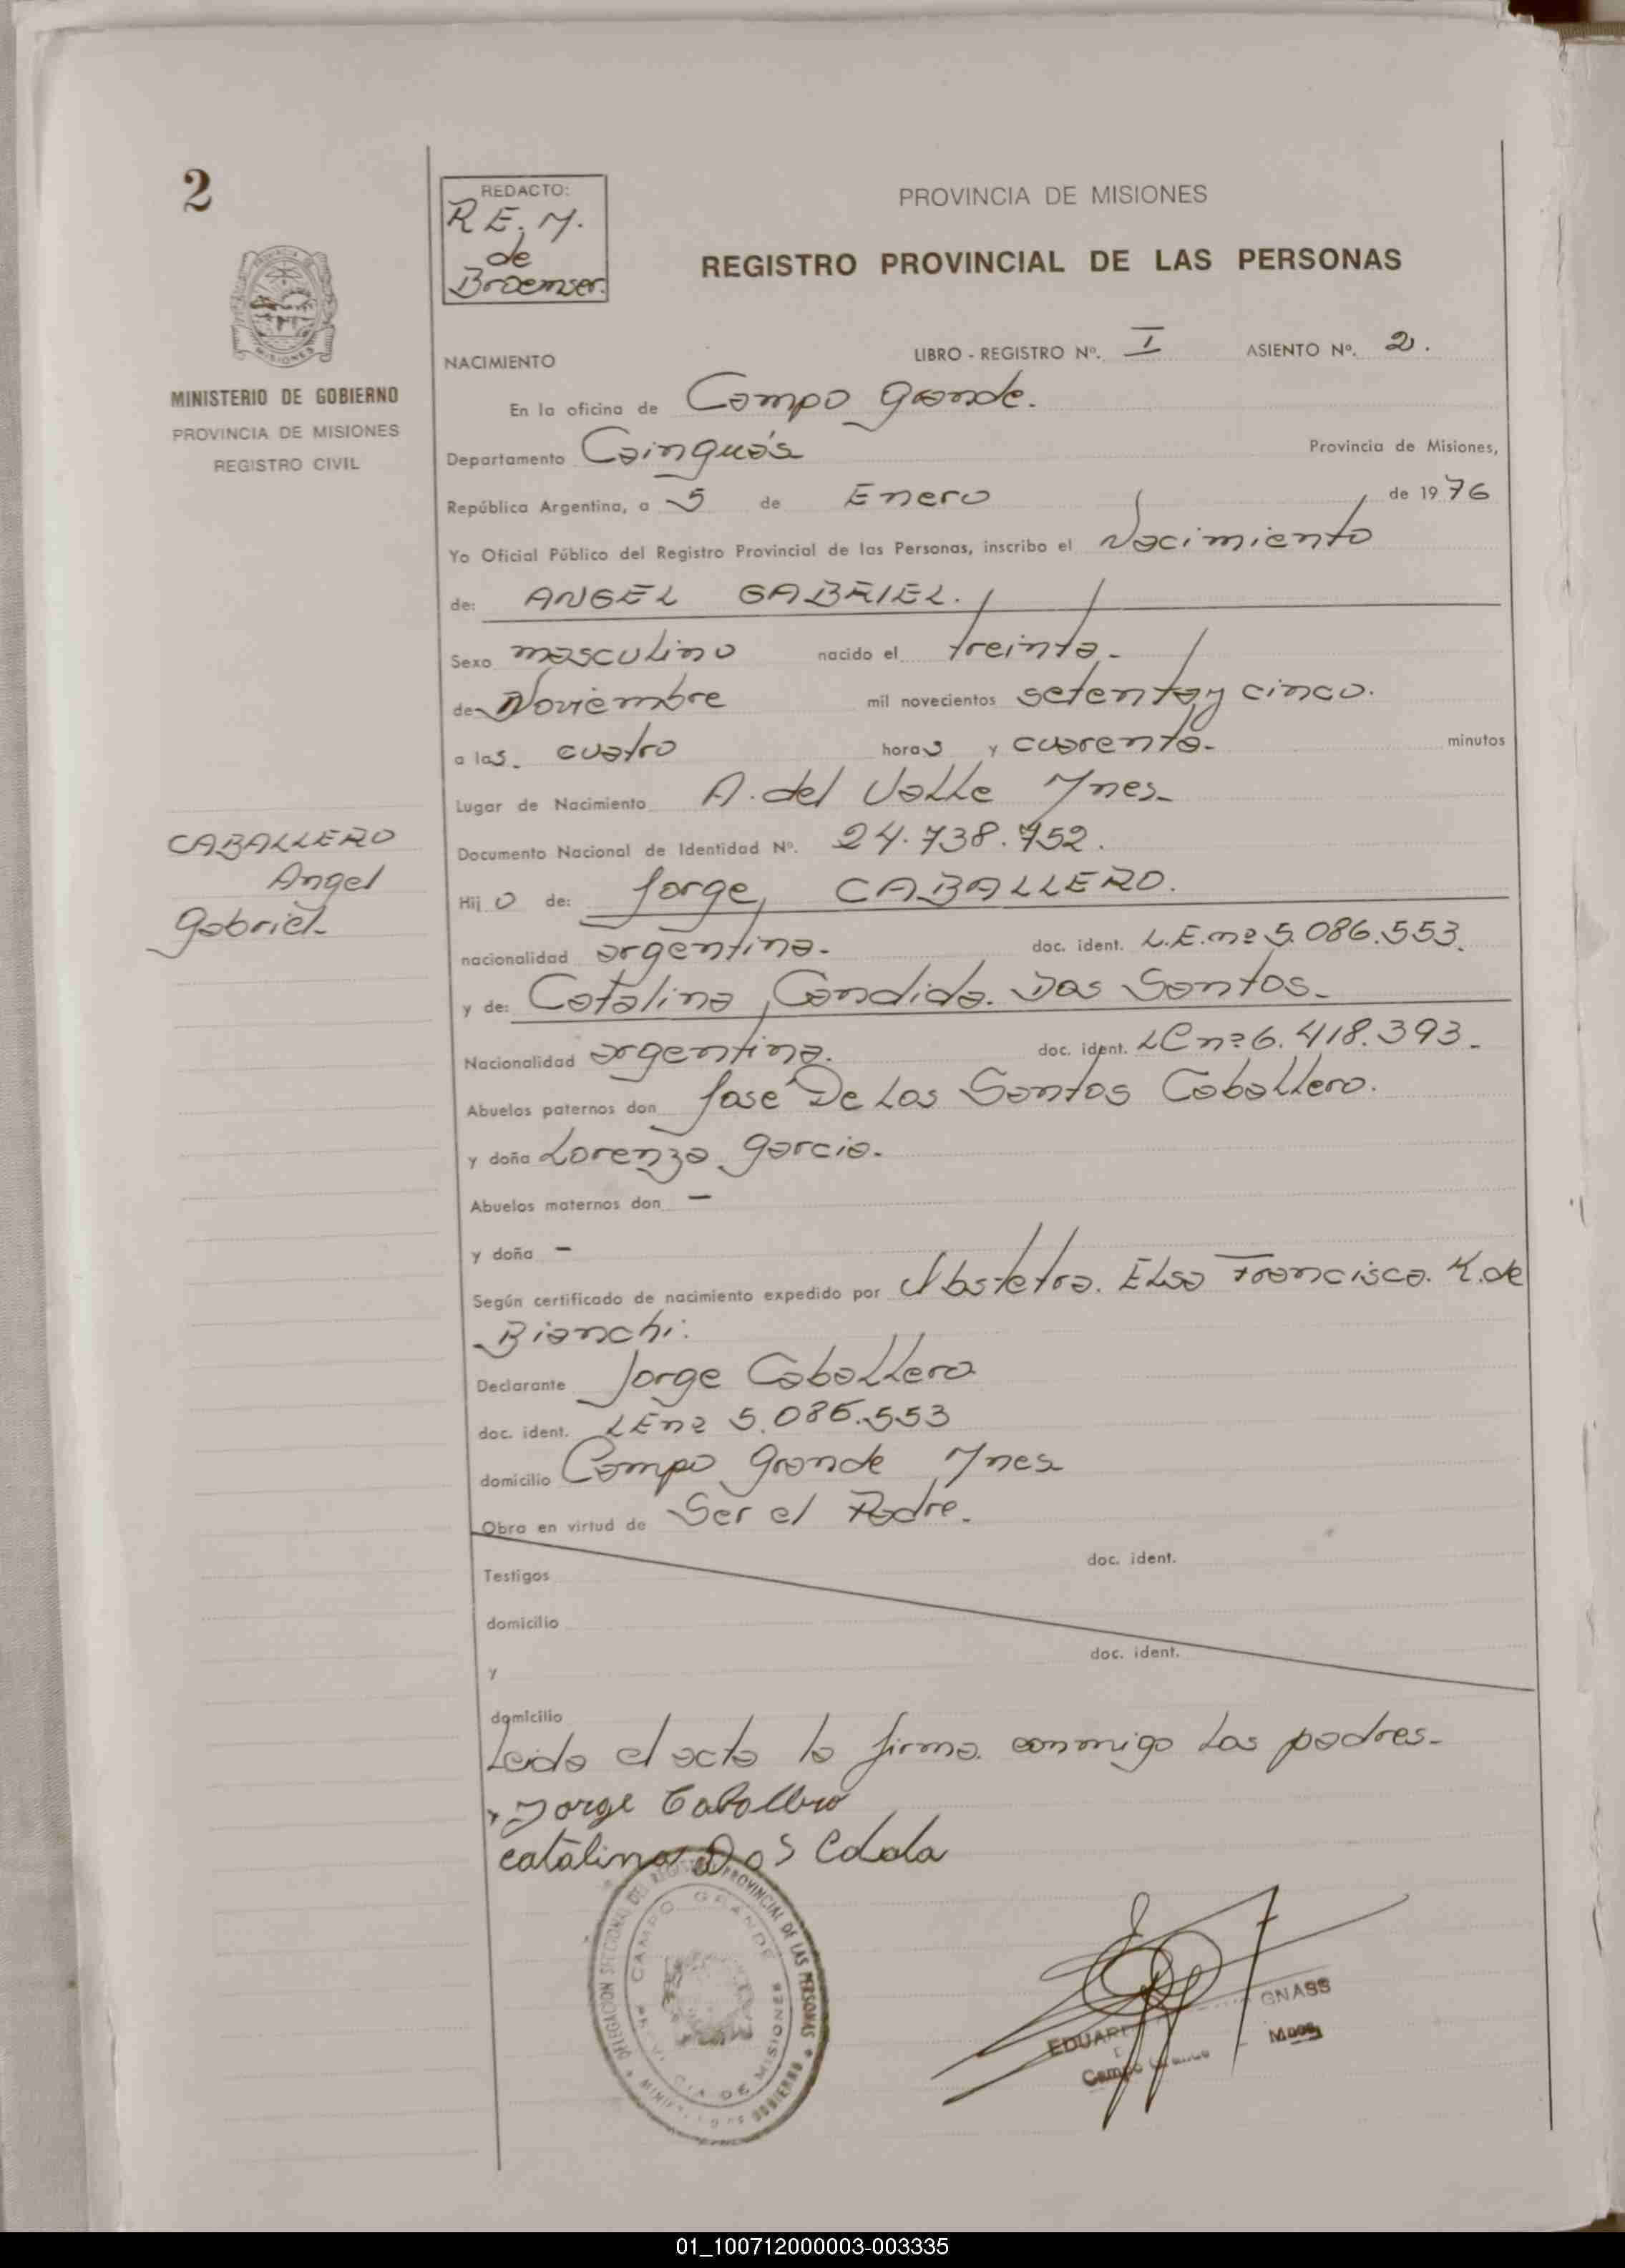 2
REDACTO:
R.E.M.
de
Broemser.
PROVINCIA DE MISIONES
REGISTRO PROVINCIAL DE LAS PERSONAS
MISIONES
MINISTERIO DE GOBIERNO
PROVINCIA DE MISIONES
REGISTRO CIVIL
NACIMIENTO
LIBRO - REGISTRO Nº. I ASIENTO Nº. 2.
En la oficina de Campo Grande.
Departamento Cainguás Provincia de Misiones,
República Argentina, a 5 de Enero de 1976
Yo Oficial Público del Registro Provincial de las Personas, inscribo el Nacimiento
de: ANGEL GABRIEL.
Sexo masculino nacido el treinta.-
de Noviembre mil novecientos setenta y cinco.
a las. cuatro horas y cuarenta- minutos
Lugar de Nacimiento A. del Valle Mnes-
Documento Nacional de Identidad Nº. 24.738.752.
Hijo de: Jorge, CABALLERO.
CABALLERO
Angel
Gabriel-
nacionalidad argentina.- doc. ident. L.E.nº 5.086.553.
y de: Catalina, Candida. Dos Santos.-
Nacionalidad argentina. doc. ident. LC nº 6.418.393.-
Abuelos paternos don José De Los Santos Caballero.
y doña Lorenza Garcia.-
Abuelos maternos don -
y doña -
Según certificado de nacimiento expedido por Obstetra. Elsa Francisca. K. de
Bianchi.
Declarante Jorge Caballero
doc. ident. LE nº 5.086.553
domicilio Campo Grande Mnes
Obra en virtud de Ser el Padre.-
Testigos doc. ident.
domicilio
y doc. ident.
domicilio
Leida el acta la firma. conmigo los padres-
Jorge Caballero
catalina Dos
DELEGACION SECCIONAL DEL REGISTRO PROVINCIAL DE LAS PERSONAS
CAMPO GRANDE
DE MISIONES
GOBIERNO
GNASS
Campo
Mnes
01_100712000003-003335